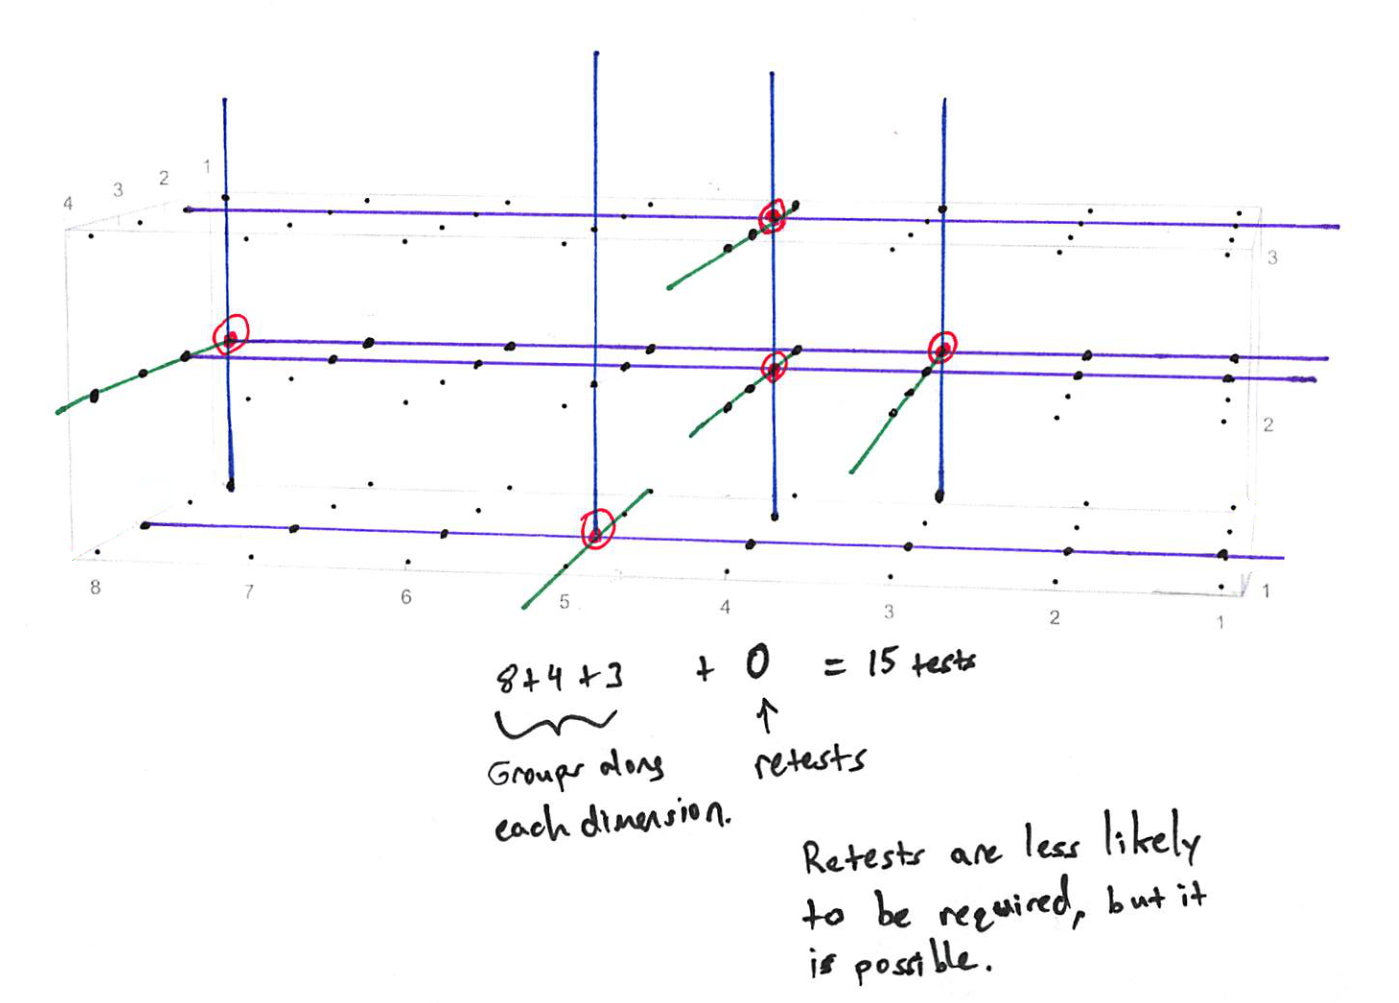 1
2
3
4
3
2
8
7
6
5
4
3
2
1
1
8+4+3 + 0 = 15 tests
↑
Groups along retests
each dimension.
Retests are less likely
to be required, but it
is possible.